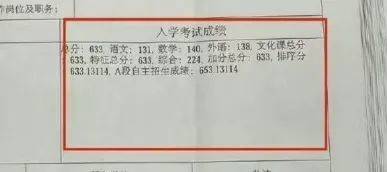 作岗位及职务：
入学考试成绩
总分：633, 语文：131, 数学：140, 外语：138, 文化课总分
：633, 特征总分：633, 综合：224, 加分总分：633, 排序分
633.13114, A段自主招生成绩：653.13114